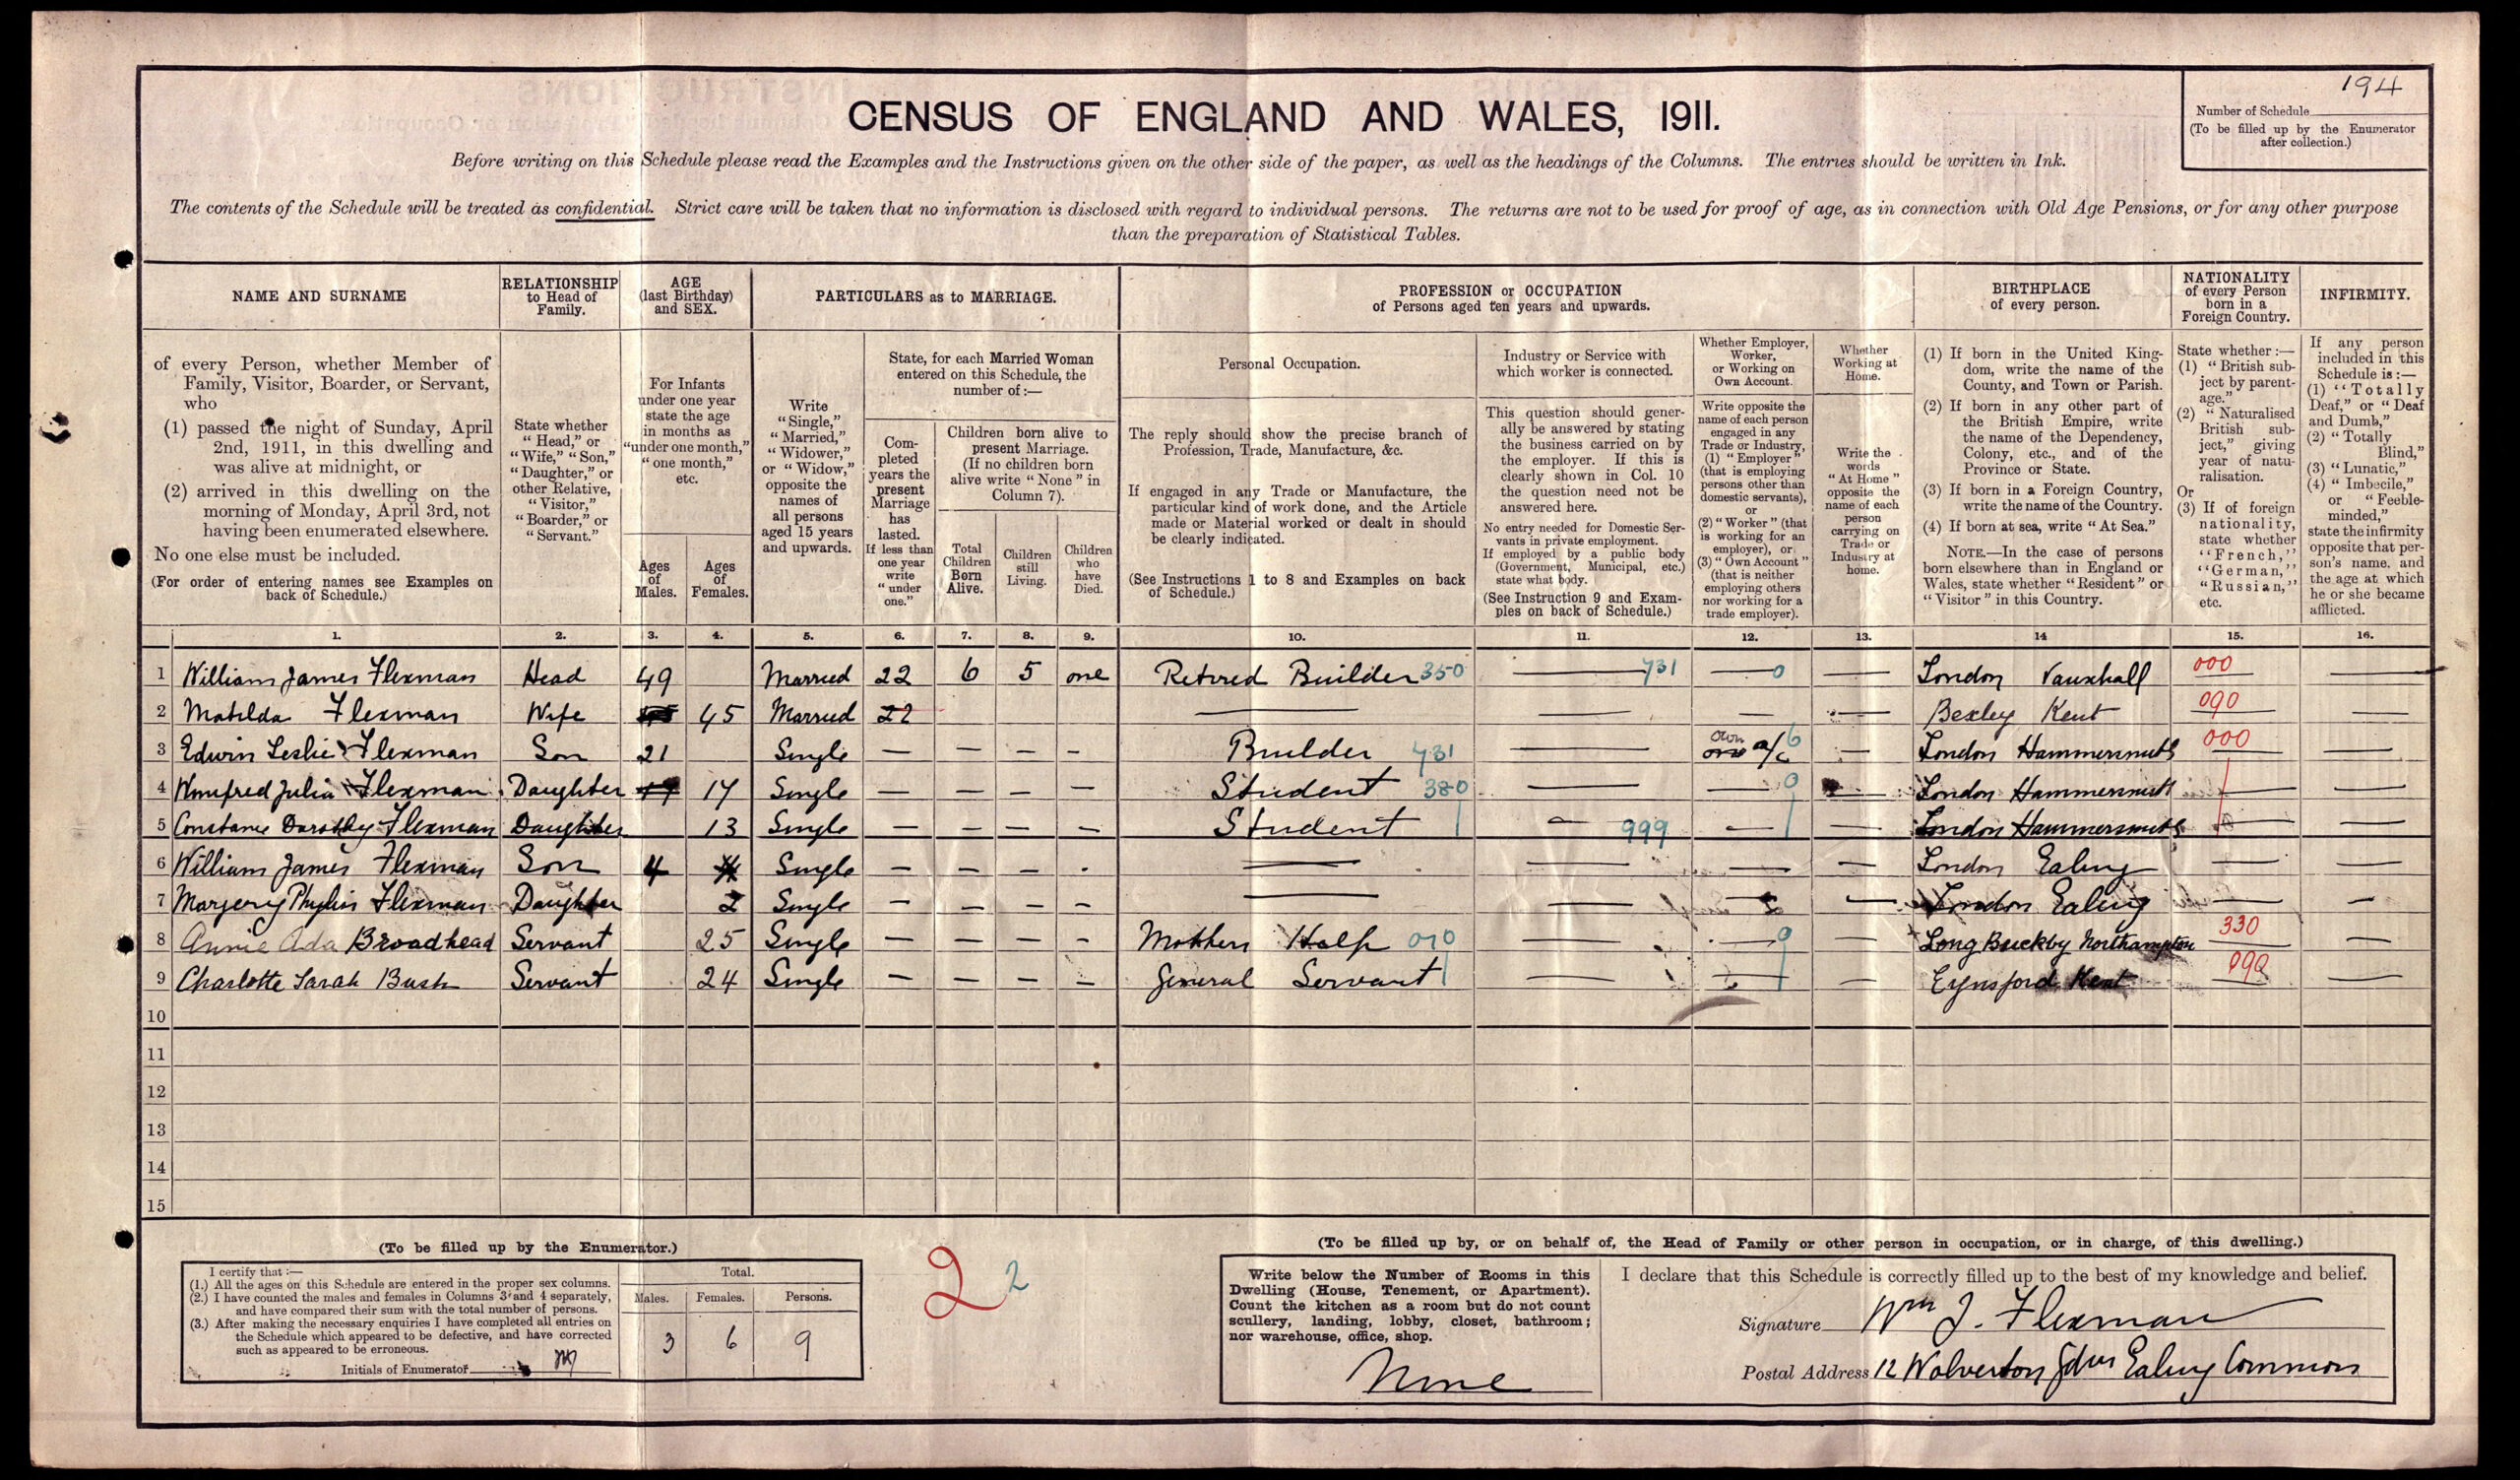 194
Number of Schedule
(To be filled up by the Enumerator
after collection.)
CENSUS OF ENGLAND AND WALES, 1911.
Before writing on this Schedule please read the Examples and the Instructions given on the other side of the paper, as well as the headings of the Columns. The entries should be written in Ink.
The contents of the Schedule will be treated as confidential. Strict care will be taken that no information is disclosed with regard to individual persons. The returns are not to be used for proof of age, as in connection with Old Age Pensions, or for any other purpose
than the preparation of Statistical Tables.
NAME AND SURNAME
of every Person, whether Member of
Family, Visitor, Boarder, or Servant,
who
(1) passed the night of Sunday, April
2nd, 1911, in this dwelling and
was alive at midnight, or
(2) arrived in this dwelling on the
morning of Monday, April 3rd, not
having been enumerated elsewhere.
No one else must be included.
(For order of entering names see Examples on
back of Schedule.)
RELATIONSHIP
to Head of
Family.
State whether
"Head," or
"Wife," "Son,"
"Daughter," or
other Relative,
"Visitor,"
"Boarder," or
"Servant."
AGE
(last Birthday)
and SEX.
For Infants
under one year
state the age
in months as
"under one month,"
"one month,"
etc.
Ages
of
Males.
Ages
of
Females.
PARTICULARS as to MARRIAGE.
Write
"Single,"
"Married,"
"Widower,"
or "Widow,"
opposite the
names of
all persons
aged 15 years
and upwards.
State, for each Married Woman
entered on this Schedule, the
number of:—
Com-
pleted
years the
present
Marriage
has
lasted.
If less than
one year
write
"under
one."
Children born alive to
present Marriage.
(If no children born
alive write "None" in
Column 7).
Total
Children
Born
Alive.
Children
still
Living.
Children
who
have
Died.
PROFESSION or OCCUPATION
of Persons aged ten years and upwards.
Personal Occupation.
The reply should show the precise branch of
Profession, Trade, Manufacture, &c.
If engaged in any Trade or Manufacture, the
particular kind of work done, and the Article
made or Material worked or dealt in should
be clearly indicated.
(See Instructions 1 to 8 and Examples on back
of Schedule.)
Industry or Service with
which worker is connected.
This question should gener-
ally be answered by stating
the business carried on by
the employer. If this is
clearly shown in Col. 10
the question need not be
answered here.
No entry needed for Domestic Ser-
vants in private employment.
If employed by a public body
(Government, Municipal, etc.)
state what body.
(See Instruction 9 and Exam-
ples on back of Schedule.)
Whether Employer,
Worker,
or Working on
Own Account.
Write opposite the
name of each person
engaged in any
Trade or Industry,
(1) "Employer"
(that is employing
persons other than
domestic servants),
or
(2) "Worker" (that
is working for an
employer), or
(3) "Own Account"
(that is neither
employing others
nor working for a
trade employer).
Whether
Working at
Home.
Write the
words
"At Home"
opposite the
name of each
person
carrying on
Trade or
Industry at
home.
BIRTHPLACE
of every person.
(1) If born in the United King-
dom, write the name of the
County, and Town or Parish.
(2) If born in any other part of
the British Empire, write
the name of the Dependency,
Colony, etc., and of the
Province or State.
(3) If born in a Foreign Country,
write the name of the Country.
(4) If born at sea, write "At Sea."
NOTE.—In the case of persons
born elsewhere than in England or
Wales, state whether "Resident" or
"Visitor" in this Country.
NATIONALITY
of every Person
born in a
Foreign Country.
State whether:—
(1) "British sub-
ject by parent-
age."
(2) "Naturalised
British sub-
ject," giving
year of natu-
ralisation.
Or
(3) If of foreign
nationality,
state whether
"French,"
"German,"
"Russian,"
etc.
INFIRMITY.
If any person
included in this
Schedule is:—
(1) "Totally
Deaf," or "Deaf
and Dumb,"
(2) "Totally
Blind,"
(3) "Lunatic,"
(4) "Imbecile,"
or "Feeble-
minded,"
state the infirmity
opposite that per-
son's name, and
the age at which
he or she became
afflicted.
1. 2. 3. 4. 5. 6. 7. 8. 9. 10. 11. 12. 13. 14 15. 16.
1 William James Flexman Head 49 Married 22 6 5 one Retired Builder 350 — 731 — 0 — London Vauxhall 000 —
2 Matilda Flexman Wife 45 Married 22 — — — — Bexley Kent 090 —
3 Edwin Leslie Flexman Son 21 Single — — — — Builder 731 — own a/c 6 — London Hammersmith 000 —
4 Winifred Julia Flexman Daughter 17 Single — — — — Student 380 — — 0 — London Hammersmith — —
5 Constance Dorothy Flexman Daughter 13 Single — — — — Student — 999 — — London Hammersmith — —
6 William James Flexman Son 4 Single — — — — — — — London Ealing — —
7 Margery Phyllis Flexman Daughter 2 Single — — — — — — — London Ealing — —
8 Annie Ada Broadhead Servant 25 Single — — — — Mothers Help 010 — — 0 — Long Buckby Northampton 330 —
9 Charlotte Sarah Bush Servant 24 Single — — — — General Servant — — — Eynsford Kent 090 —
10
11
12
13
14
15
(To be filled up by the Enumerator.)
I certify that:—
(1.) All the ages on this Schedule are entered in the proper sex columns.
(2.) I have counted the males and females in Columns 3 and 4 separately,
and have compared their sum with the total number of persons.
(3.) After making the necessary enquiries I have completed all entries on
the Schedule which appeared to be defective, and have corrected
such as appeared to be erroneous.
Initials of Enumerator
Total.
Males. Females. Persons.
3 6 9
2 2
(To be filled up by, or on behalf of, the Head of Family or other person in occupation, or in charge, of this dwelling.)
Write below the Number of Rooms in this
Dwelling (House, Tenement, or Apartment).
Count the kitchen as a room but do not count
scullery, landing, lobby, closet, bathroom;
nor warehouse, office, shop.
Nine
I declare that this Schedule is correctly filled up to the best of my knowledge and belief.
Signature Wm J. Flexman
Postal Address 12 Wolverton Gdns Ealing Common